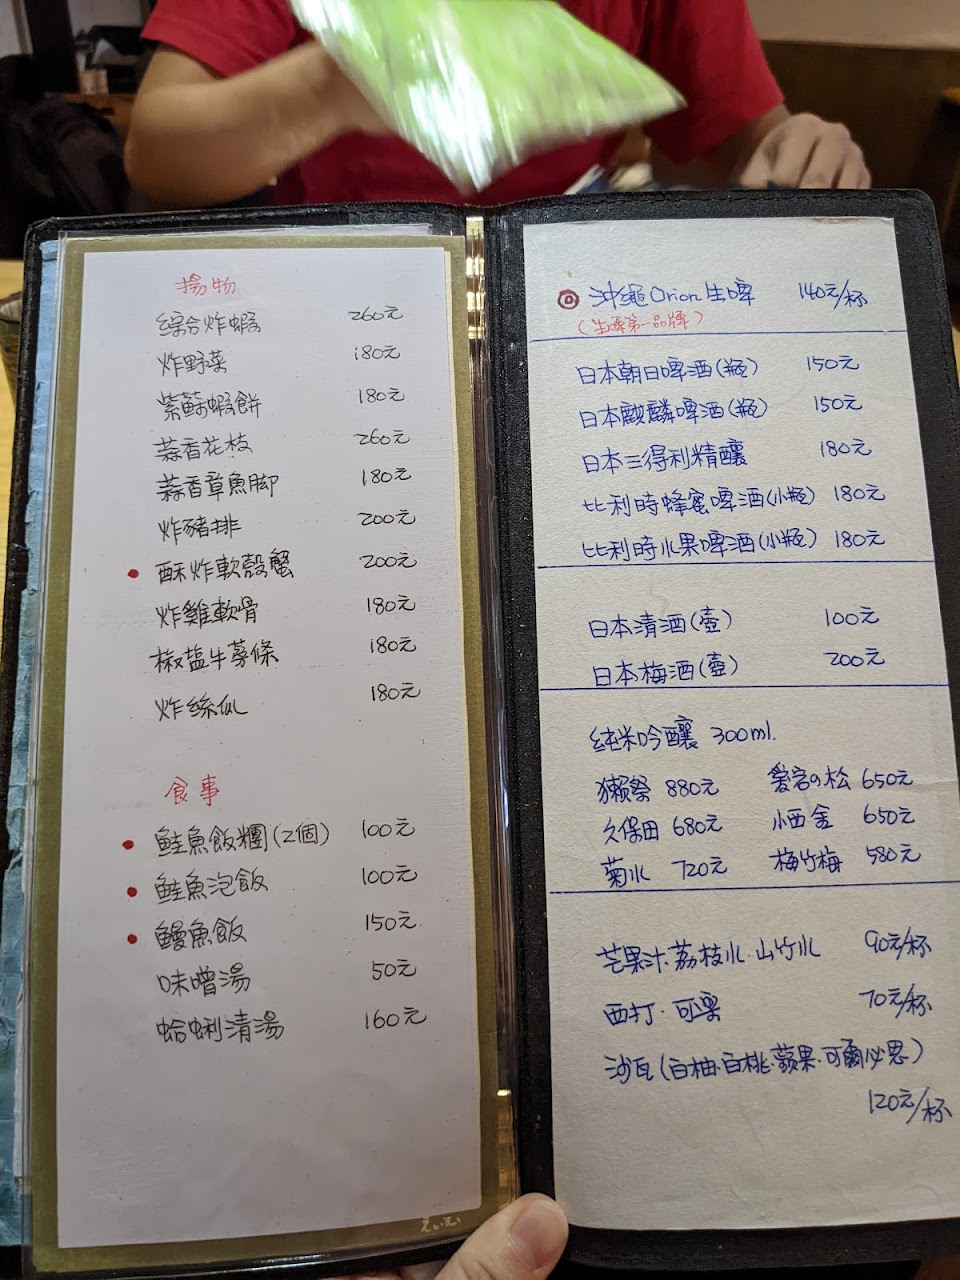 揚物
綜合炸蝦 260元
炸野菜 180元
紫蘇蝦餅 180元
蒜香花枝 260元
蒜香章魚脚 180元
炸豬排 200元
酥炸軟殼蟹 200元
炸雞軟骨 180元
椒盐牛蒡條 180元
炸絲瓜 180元
食事
鮭魚飯糰(2個) 100元
鮭魚泡飯 100元
鰻魚飯 150元
味噌湯 50元
蛤蜊清湯 160元
沖繩Orion生啤 140元/杯
(生啤第一品牌)
日本朝日啤酒(瓶) 150元
日本麒麟啤酒(瓶) 150元
日本三得利精釀 180元
比利時蜂蜜啤酒(小瓶) 180元
比利時水果啤酒(小瓶) 180元
日本清酒(壺) 100元
日本梅酒(壺) 200元
純米吟釀 300ml.
獺祭 880元 爱宕の松 650元
久保田 680元 小西金 650元
菊水 720元 梅竹梅 580元
芒果汁·荔枝水·山竹水 90元/杯
西打·可樂 70元/杯
沙瓦(白柚·白桃·蘋果·可爾必思)
120元/杯